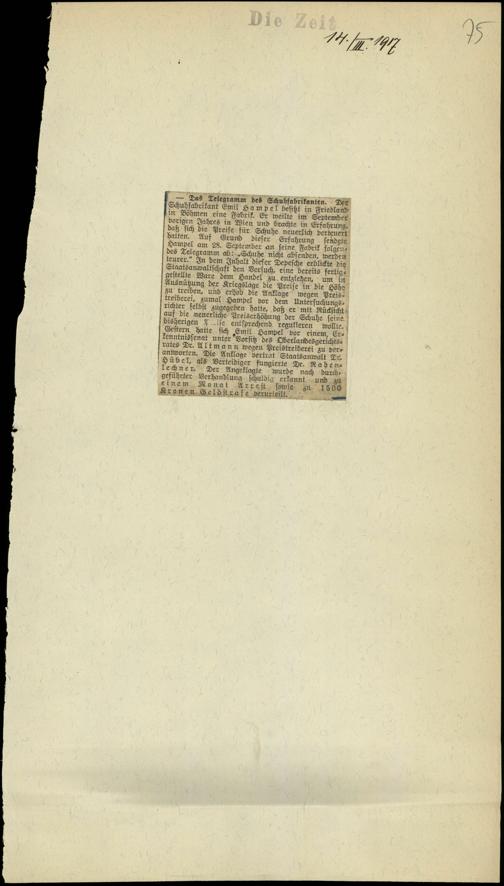 Die Zeit
14./III. 1917
75
— Das Telegramm des Schuhfabrikanten. Der
Schuhfabrikant Emil Hampel besitzt in Friedland
in Böhmen eine Fabrik. Er weilte im September
vorigen Jahres in Wien und brachte in Erfahrung,
daß sich die Preise für Schuhe neuerlich verteuert
hatten. Auf Grund dieser Erfahrung sendete
Hampel am 28. September an seine Fabrik folgen-
des Telegramm ab: „Schuhe nicht absenden, werden
teurer.“ In dem Inhalt dieser Depesche erblickte die
Staatsanwaltschaft den Versuch, eine bereits fertig-
gestellte Ware dem Handel zu entziehen, um in
Ausnützung der Kriegslage die Preise in die Höhe
zu treiben, und erhob die Anklage wegen Preis-
treiberei, zumal Hampel vor dem Untersuchungs-
richter selbst zugegeben hatte, daß er mit Rücksicht
auf die neuerliche Preiserhöhung der Schuhe seine
bisherigen entsprechend regulieren wollte.
Gestern hatte sich Emil Hampel vor einem Er-
kenntnissenat unter Vorsitz des Oberlandesgerichts-
rates Dr. Altmann wegen Preistreiberei zu ver-
antworten. Die Anklage vertrat Staatsanwalt Dr.
Hübel, als Verteidiger fungierte Dr. Raben-
lechner. Der Angeklagte wurde nach durch-
geführter Verhandlung schuldig erkannt und zu
einem Monat Arrest sowie zu 1500
Kronen Geldstrafe verurteilt.